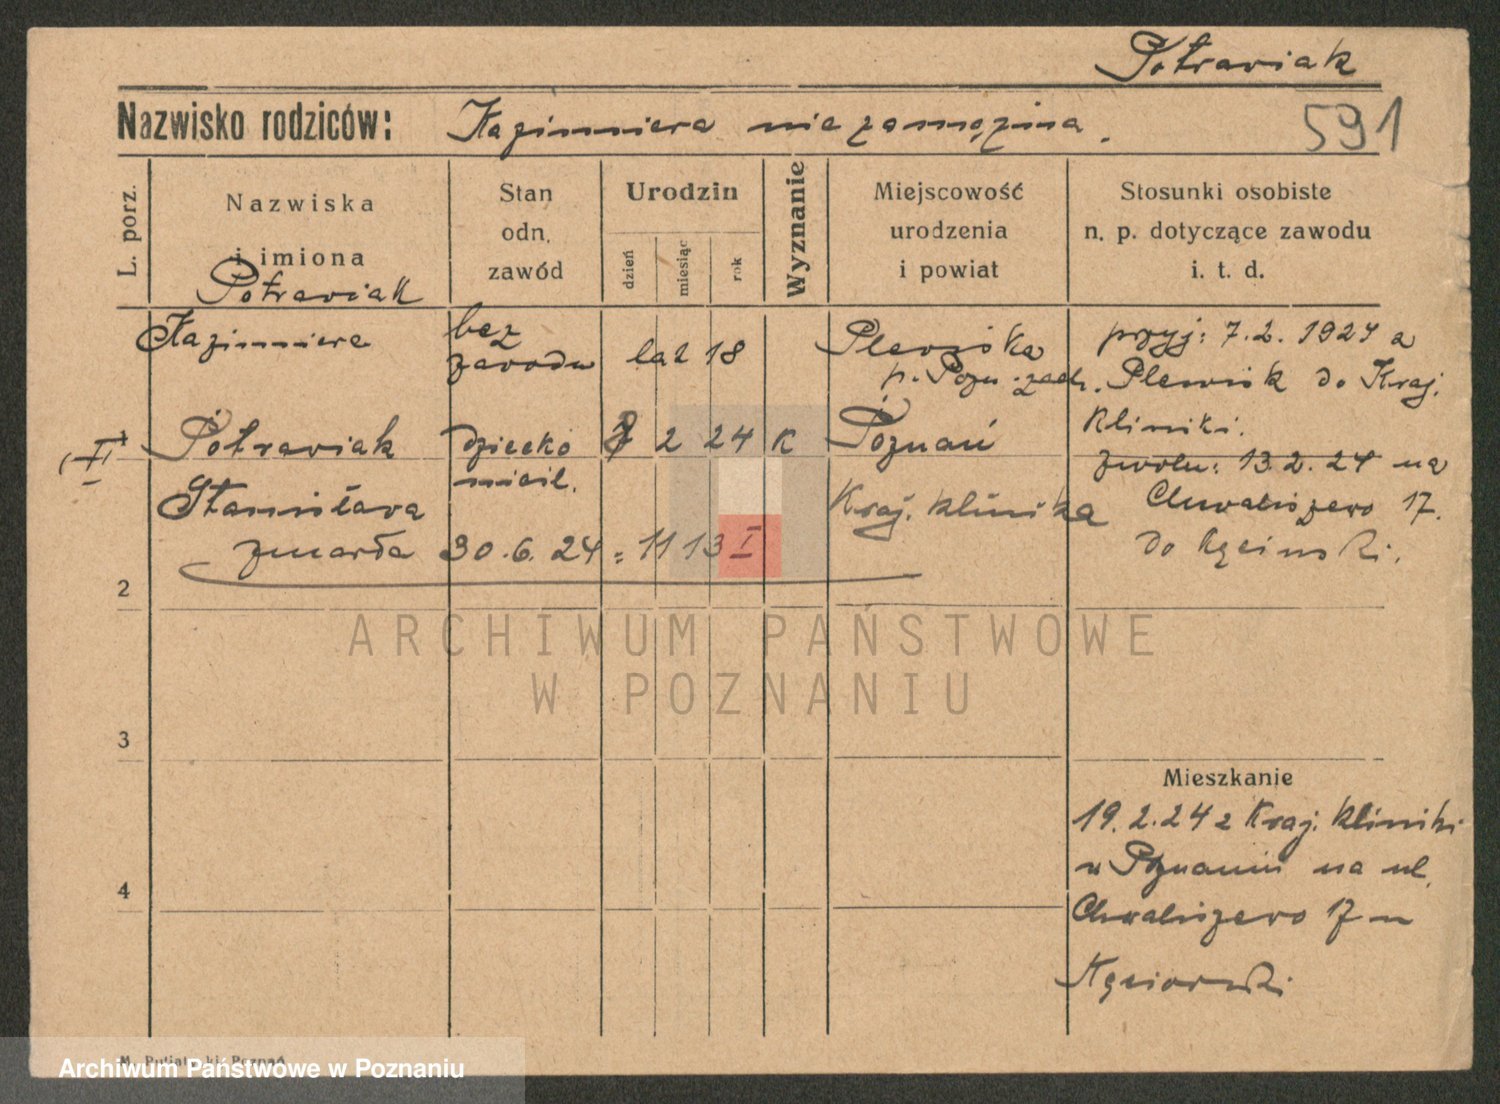 Potraviak
Nazwisko rodziców: Kazimiera niezamężna.
591
L. porz.
Nazwiska
i imiona
Stan
odn.
zawód
Urodzin
dzień
miesiąc
rok
Wyznanie
Miejscowość
urodzenia
i powiat
Stosunki osobiste
n. p. dotyczące zawodu
i. t. d.
Potraviak
Kazimiera
bez
zavodu
lat 18
Pleviska
p. Pozn. zach.
przyj: 7.2. 1924 a
Plewisk do Kraj.
kliniki.
1
Potraviak
dziecko
2 24 K
Poznań
zwoln: 13.2.24 na
Stanisłava
nieśl.
Kraj. klinika
Chwaliszevo 17.
zmarła 30.6.24 = 11 13 I
do
2
ARCHIWUM PAŃSTWOWE
W POZNANIU
3
Mieszkanie
19.2.24 z Kraj. kliniki
w Poznaniu na ul.
4
Chwaliszevo 17 u
M. Putiatycki Poznań
Archiwum Państwowe w Poznaniu